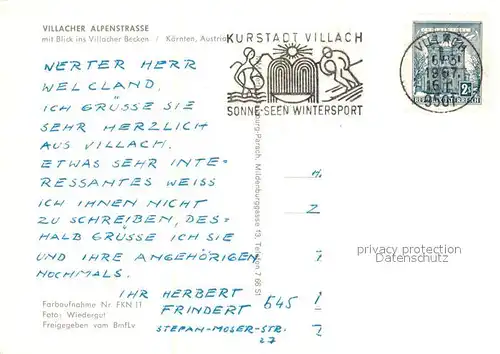 VILLACHER ALPENSTRASSE
mit Blick ins Villacher Becken / Kärnten, Austria
KURSTADT VILLACH
SONNE-SEEN WINTERSPORT
VILLACH
1967
950
WERTER HERR
WELCLAND,
ICH GRÜSSE SIE
SEHR HERZLICH
AUS VILLACH.
ETWAS SEHR INTE=
RESSANTES WEISS
ICH IHNEN NICHT
ZU SCHREIBEN, DES=
HALB GRÜSSE ICH SIE
UND IHRE ANGEHÖRIGEN
NOCHMALS.
IHR HERBERT
FRINDERT
STEFAN-MOSER-STR.
27
545
Mildenburggasse 13, Telefon 7 66 51
privacy protection
Datenschutz
Farbaufnahme Nr. FKN 11
Foto: Wiedergut
Freigegeben vom BmfLv